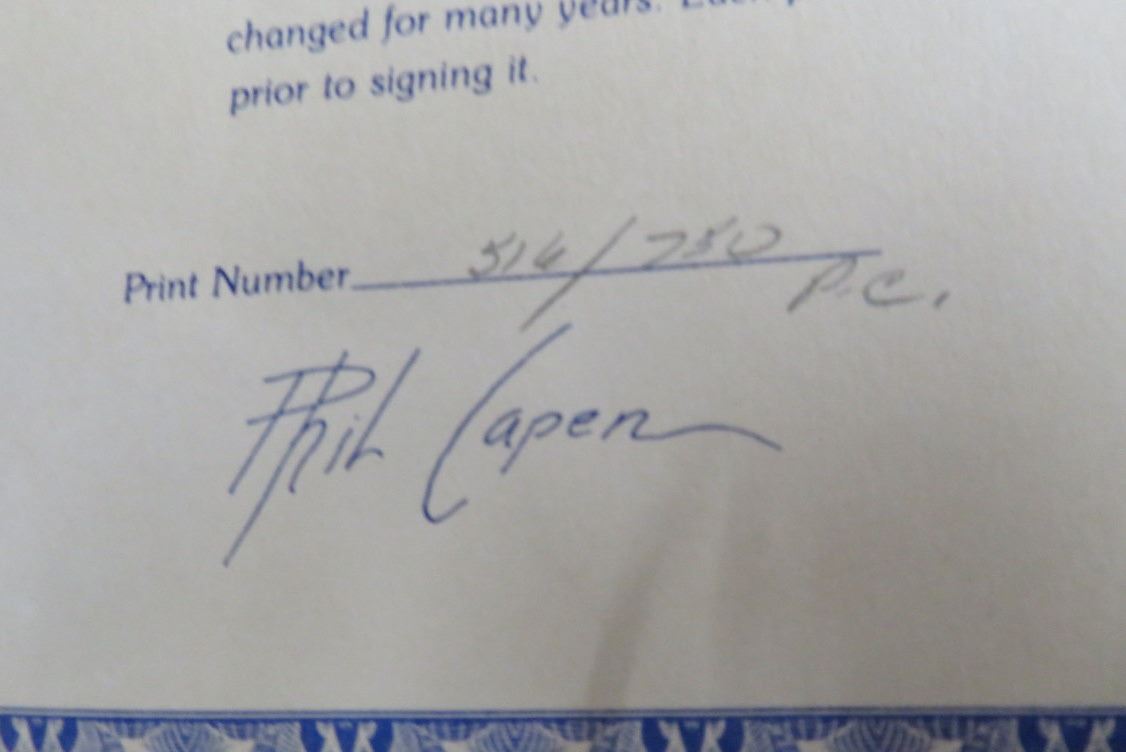 changed for many years. Each
prior to signing it.
Print Number 516/750
P.C.
Phil Capen